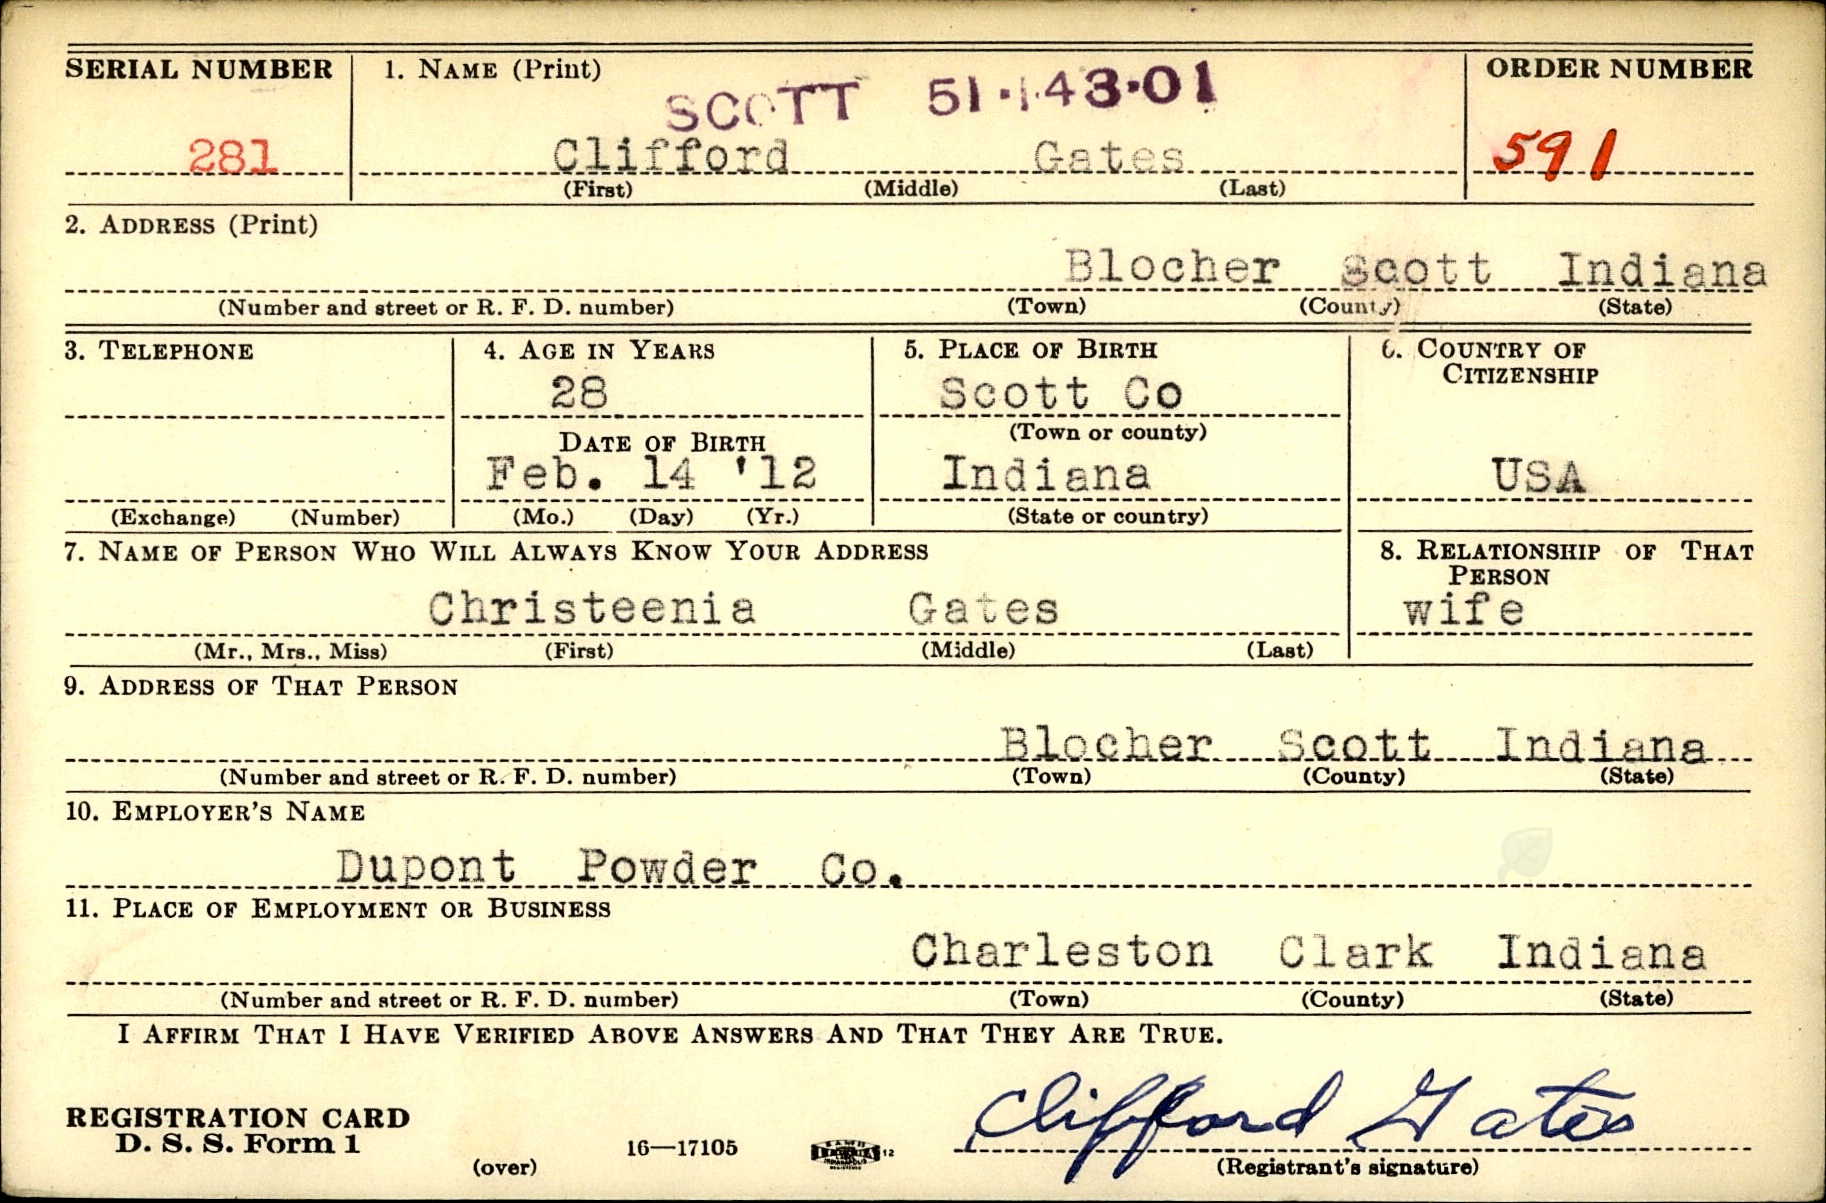 SERIAL NUMBER 1. NAME (Print) ORDER NUMBER
SCOTT 51·143·01
281 Clifford Gates 591
(First) (Middle) (Last)
2. ADDRESS (Print)
Blocher Scott Indiana
(Number and street or R. F. D. number) (Town) (County) (State)
3. TELEPHONE 4. AGE IN YEARS 5. PLACE OF BIRTH 6. COUNTRY OF CITIZENSHIP
28 Scott Co
DATE OF BIRTH (Town or county)
Feb. 14 '12 Indiana USA
(Exchange) (Number) (Mo.) (Day) (Yr.) (State or country)
7. NAME OF PERSON WHO WILL ALWAYS KNOW YOUR ADDRESS 8. RELATIONSHIP OF THAT PERSON
Christeenia Gates wife
(Mr., Mrs., Miss) (First) (Middle) (Last)
9. ADDRESS OF THAT PERSON
Blocher Scott Indiana
(Number and street or R. F. D. number) (Town) (County) (State)
10. EMPLOYER'S NAME
Dupont Powder Co.
11. PLACE OF EMPLOYMENT OR BUSINESS
Charleston Clark Indiana
(Number and street or R. F. D. number) (Town) (County) (State)
I AFFIRM THAT I HAVE VERIFIED ABOVE ANSWERS AND THAT THEY ARE TRUE.
REGISTRATION CARD
D. S. S. Form 1 16—17105 12 Clifford Gates
(over) (Registrant's signature)